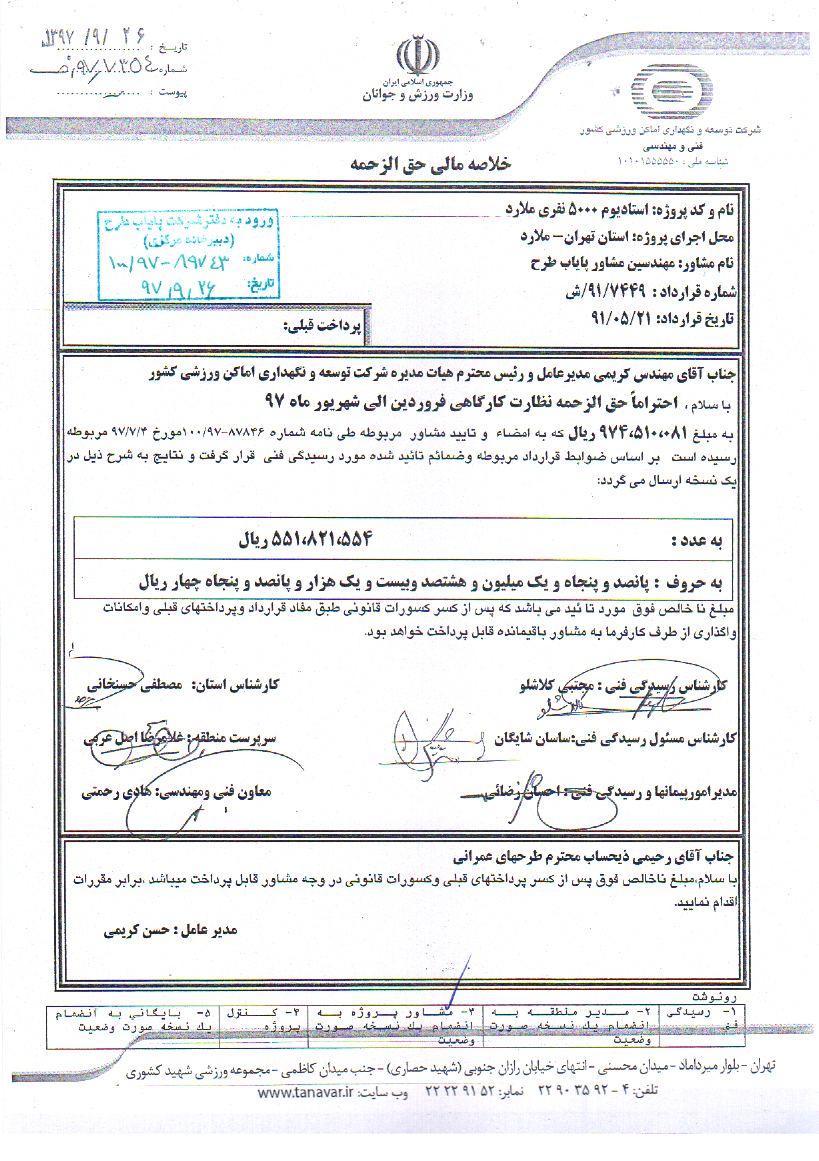 تاریخ : ۱۳۹۷/۹/۲۶
شماره : ۹۷/۷۰۳۵۴
پیوست :
جمهوری اسلامی ایران
وزارت ورزش و جوانان
شرکت توسعه و نگهداری اماکن ورزشی کشور
فنی و مهندسی
شناسه ملی : ۱۰۱۰۱۵۵۵۵۵۰
خلاصه مالی حق الزحمه
نام و کد پروژه: استادیوم ۵۰۰۰ نفری ملارد
محل اجرای پروژه: استان تهران – ملارد
نام مشاور: مهندسین مشاور پایاب طرح
شماره قرارداد : ۹۱/۷۴۴۹/ش
تاریخ قرارداد: ۹۱/۰۵/۲۱
ورود به دفتر شرکت پایاب طرح
(دبیرخانه مرکزی)
شماره: ۱۰۰/۹۷-۸۹۷۴۳
تاریخ: ۹۷/۹/۲۶
پرداخت قبلی:
جناب آقای مهندس کریمی مدیرعامل و رئیس محترم هیات مدیره شرکت توسعه و نگهداری اماکن ورزشی کشور
با سلام ، احتراماً حق الزحمه نظارت کارگاهی فروردین الی شهریور ماه ۹۷
به مبلغ ۹۷۴،۵۱۰،۰۸۱ ریال که به امضاء و تایید مشاور مربوطه طی نامه شماره ۸۷۸۴۶-۱۰۰/۹۷مورخ ۹۷/۷/۴ مربوطه
رسیده است بر اساس ضوابط قرارداد مربوطه وضمائم تائید شده مورد رسیدگی فنی قرار گرفت و نتایج به شرح ذیل در
یک نسخه ارسال می گردد:
به عدد : ۵۵۱،۸۲۱،۵۵۴ ریال
به حروف : پانصد و پنجاه و یک میلیون و هشتصد وبیست و یک هزار و پانصد و پنجاه چهار ریال
مبلغ نا خالص فوق مورد تا ئید می باشد که پس از کسر کسورات قانونی طبق مفاد قرارداد وپرداختهای قبلی وامکانات
واگذاری از طرف کارفرما به مشاور باقیمانده قابل پرداخت خواهد بود.
کارشناس رسیدگی فنی : مجتبی کلاشلو
کارشناس استان: مصطفی حسنخانی
کارشناس مسئول رسیدگی فنی:ساسان شایگان
سرپرست منطقه: غلامرضا اصل عربی
مدیرامورپیمانها و رسیدگی فنی : احسان رضائی
معاون فنی ومهندسی: هادی رحمتی
جناب آقای رحیمی ذیحساب محترم طرحهای عمرانی
با سلام،مبلغ ناخالص فوق پس از کسر پرداختهای قبلی وکسورات قانونی در وجه مشاور قابل پرداخت میباشد ،برابر مقررات
اقدام نمایید.
مدیر عامل : حسن کریمی
رونوشت
۱- رسیدگی فنی
۲- مدیر منطقه به انضمام یک نسخه صورت وضعیت
۳- مشاور پروژه به انضمام یک نسخه صورت وضعیت
۴- کنترل پروژه
۵- بایگانی به انضمام یک نسخه صورت وضعیت
تهران - بلوار میرداماد - میدان محسنی - انتهای خیابان رازان جنوبی (شهید حصاری) - جنب میدان کاظمی - مجموعه ورزشی شهید کشوری
تلفن: ۴ - ۹۲ ۳۵ ۹۰ ۲۲ نمابر: ۵۲ ۹۱ ۲۲ ۲۲ وب سایت: www.tanavar.ir